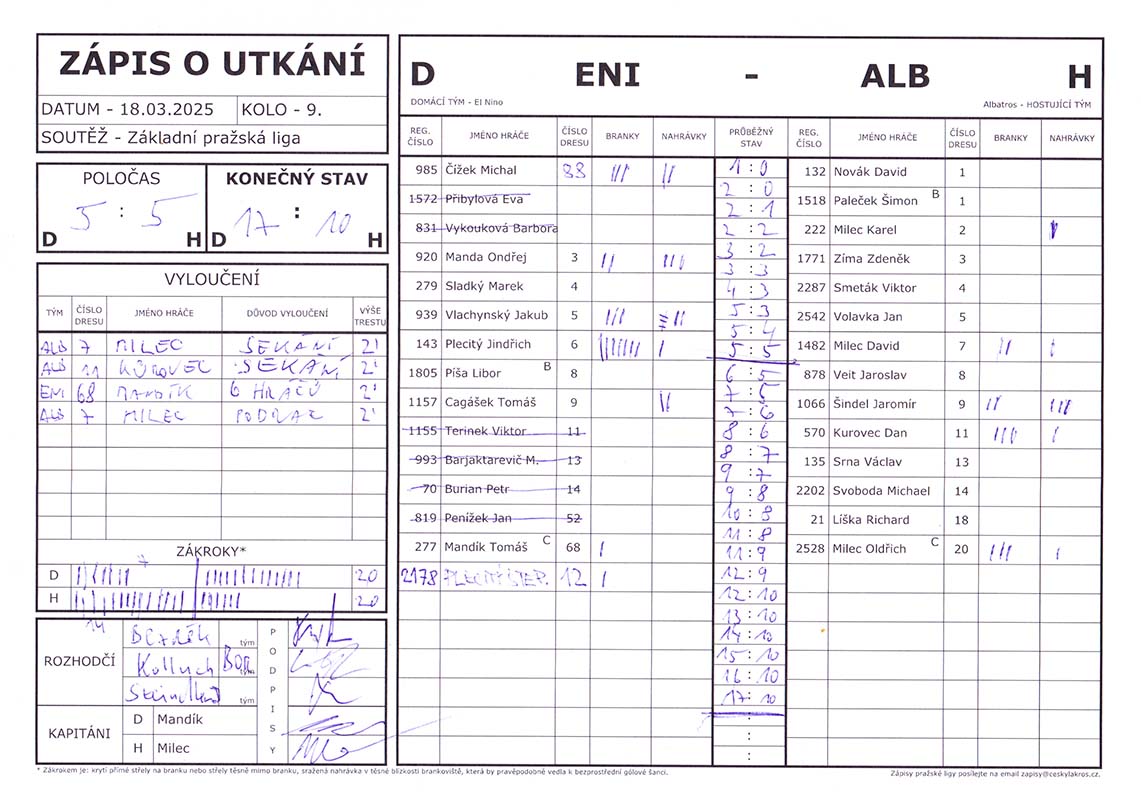 ZÁPIS O UTKÁNÍ
DATUM - 18.03.2025 KOLO - 9.
SOUTĚŽ - Základní pražská liga
POLOČAS
5 : 5
D H
KONEČNÝ STAV
17 : 10
D H
VYLOUČENÍ
TÝM ČÍSLO DRESU JMÉNO HRÁČE DŮVOD VYLOUČENÍ VÝŠE TRESTU
ALB 7 MILEC SEKÁNÍ 2'
ALB 11 KUROVEC SEKÁNÍ 2'
ENI 68 MANDÍK 6 HRÁČŮ 2'
ALB 7 MILEC PODRAZ 2'
ZÁKROKY*
7
D 20
H 20
14
ROZHODČÍ
Bezděk tým
Kolluch Boh
tým
KAPITÁNI
D Mandík
H Milec
PODPISY
D ENI - ALB H
DOMÁCÍ TÝM - El Nino Albatros - HOSTUJÍCÍ TÝM
REG. ČÍSLO JMÉNO HRÁČE ČÍSLO DRESU BRANKY NAHRÁVKY PRŮBĚŽNÝ STAV REG. ČÍSLO JMÉNO HRÁČE ČÍSLO DRESU BRANKY NAHRÁVKY
985 Čížek Michal 88 III II
1572 Přibylová Eva
831 Vykouková Barbora
920 Manda Ondřej 3 II III
279 Sladký Marek 4
939 Vlachynský Jakub 5 III
143 Plecitý Jindřich 6 IIIIIII I
1805 Píša Libor B 8
1157 Cagášek Tomáš 9 II
1155 Terinek Viktor 11
993 Barjaktarevič M. 13
70 Burian Petr 14
819 Penížek Jan 52
277 Mandík Tomáš C 68 I
2178 PLECITÝ ŠTĚP. 12 I
1 : 0
2 : 0
2 : 1
2 : 2
3 : 2
3 : 3
4 : 3
5 : 3
5 : 4
5 : 5
6 : 5
7 : 5
7 : 6
8 : 6
8 : 7
9 : 7
9 : 8
10 : 8
11 : 8
11 : 9
12 : 9
12 : 10
13 : 10
14 : 10
15 : 10
16 : 10
17 : 10
:
:
132 Novák David 1
1518 Paleček Šimon B 1
222 Milec Karel 2
1771 Zíma Zdeněk 3
2287 Smeták Viktor 4
2542 Volavka Jan 5
1482 Milec David 7 II I
878 Veit Jaroslav 8
1066 Šindel Jaromír 9 II III
570 Kurovec Dan 11 III I
135 Srna Václav 13
2202 Svoboda Michael 14
21 Líška Richard 18
2528 Milec Oldřich C 20 III I
* Zákrokem je: krytí přímé střely na branku nebo střely těsně mimo branku, sražená nahrávka v těsné blízkosti brankoviště, která by pravěpodobně vedla k bezprostřední gólové šanci.
Zápisy pražské ligy posílejte na email zapisy@ceskylakros.cz.